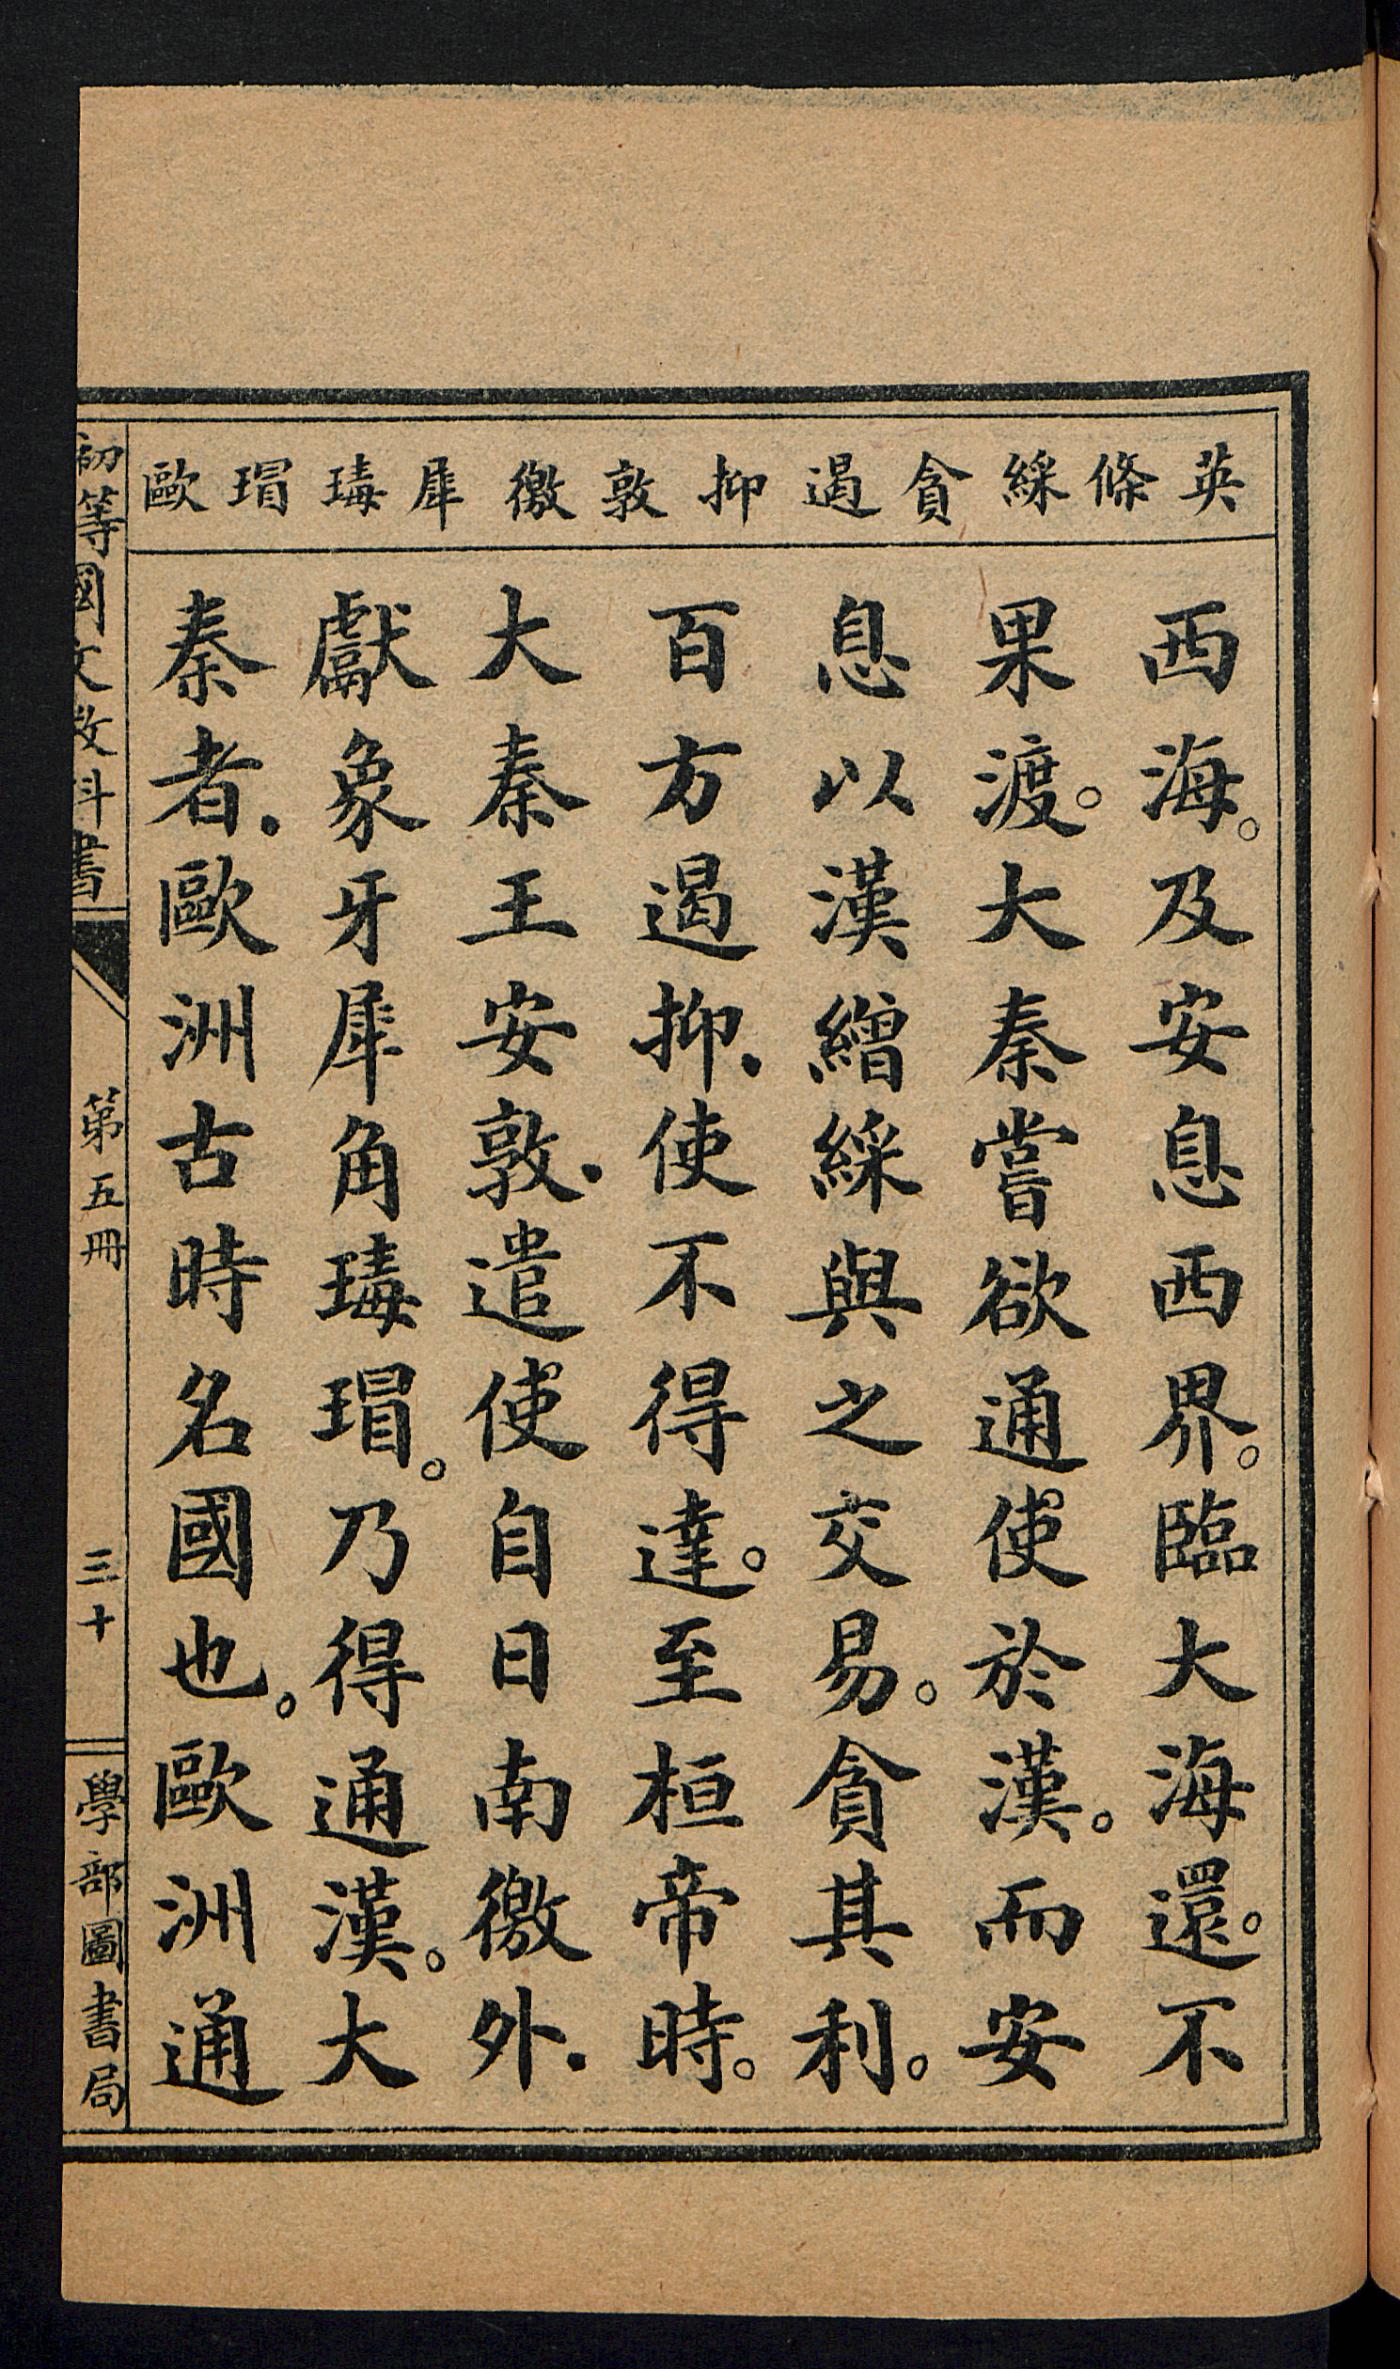 英條綵貪遏抑敦徼犀瑇瑁歐
西海。及安息西界。臨大海還。不
果渡。大秦嘗欲通使於漢。而安
息以漢繒綵與之交易。貪其利。
百方遏抑．使不得達。至桓帝時。
大秦王安敦．遣使自日南徼外．
獻象牙犀角瑇瑁。乃得通漢。大
秦者．歐洲古時名國也。歐洲通
初等國文教科書
第五冊
三十
學部圖書局